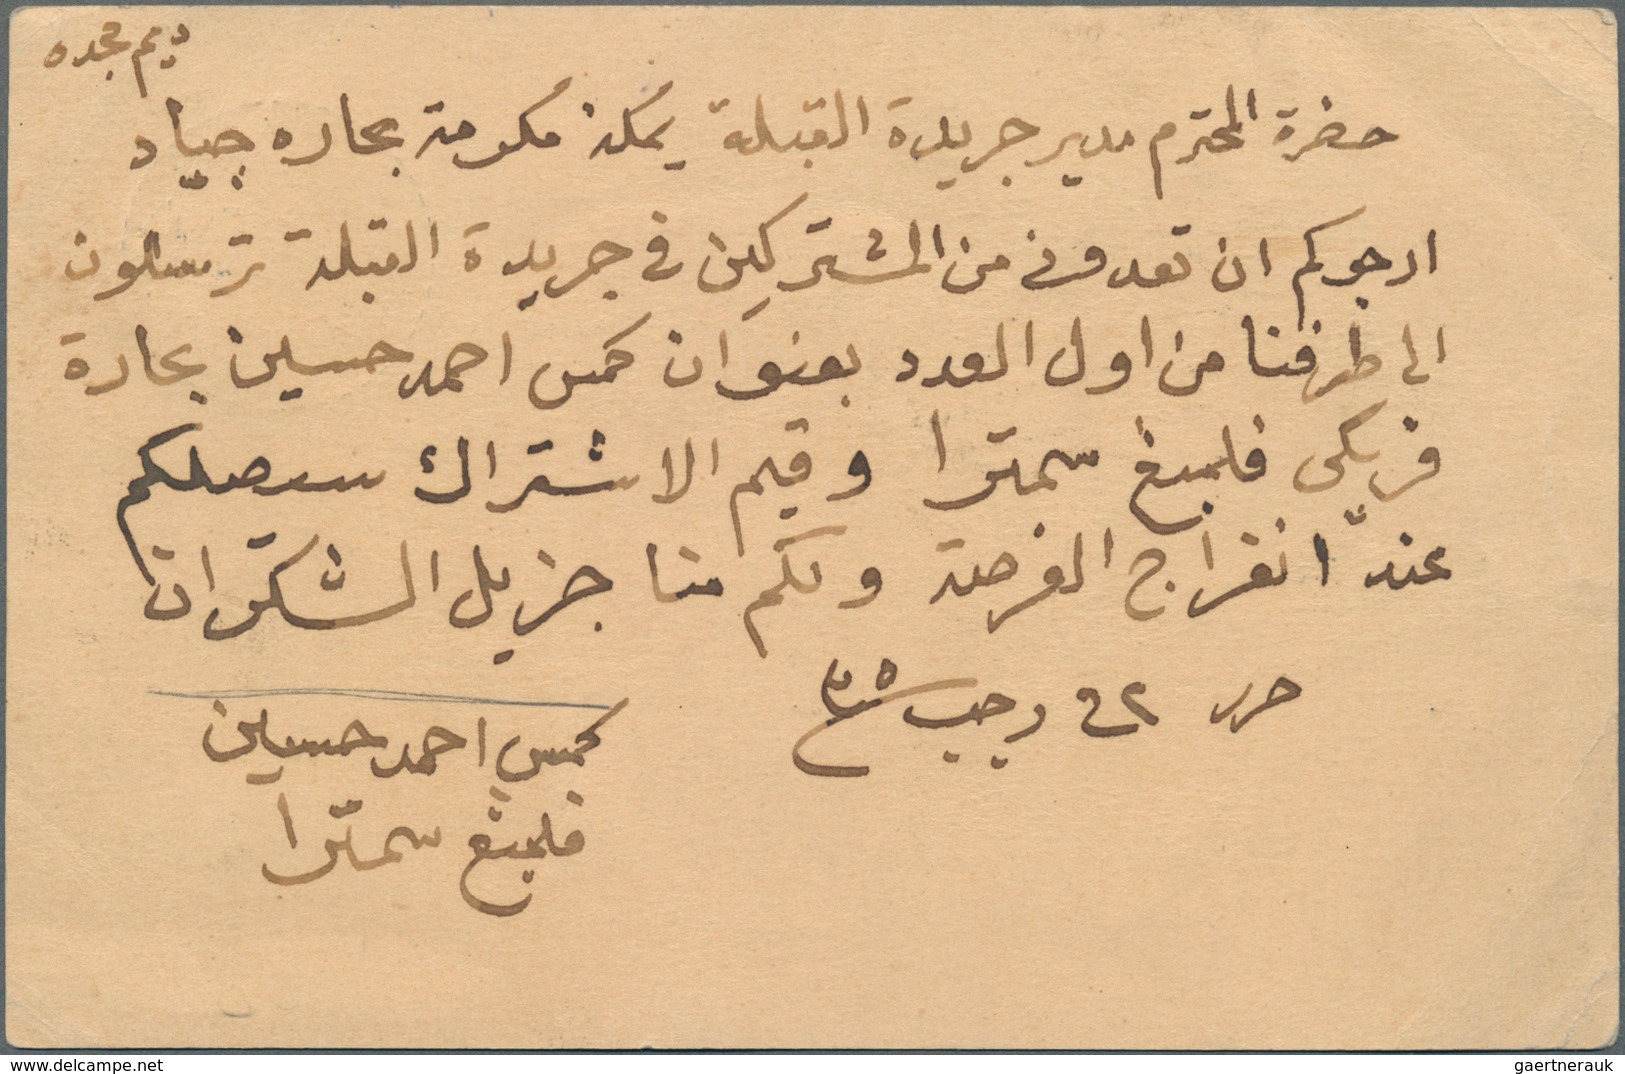 حضرة المحترم مدير جريدة القبلة بمكة مكرمة بحاره جياد
ارجوكم ان تعدوني من المشتركين في جريدة القبلة ترسلون
الى طرفنا من اول العدد بعنوان كمس احمد حسين بحارة
فلمبغ سمترا وقيم الاشتراك سيصلكم
عند انفراج الفرصة ولكم منا جزيل الشكران
حرر رجب ٣٥
كمس احمد حسين
فلمبغ سمترا
delcampe.net
gaertnerauk